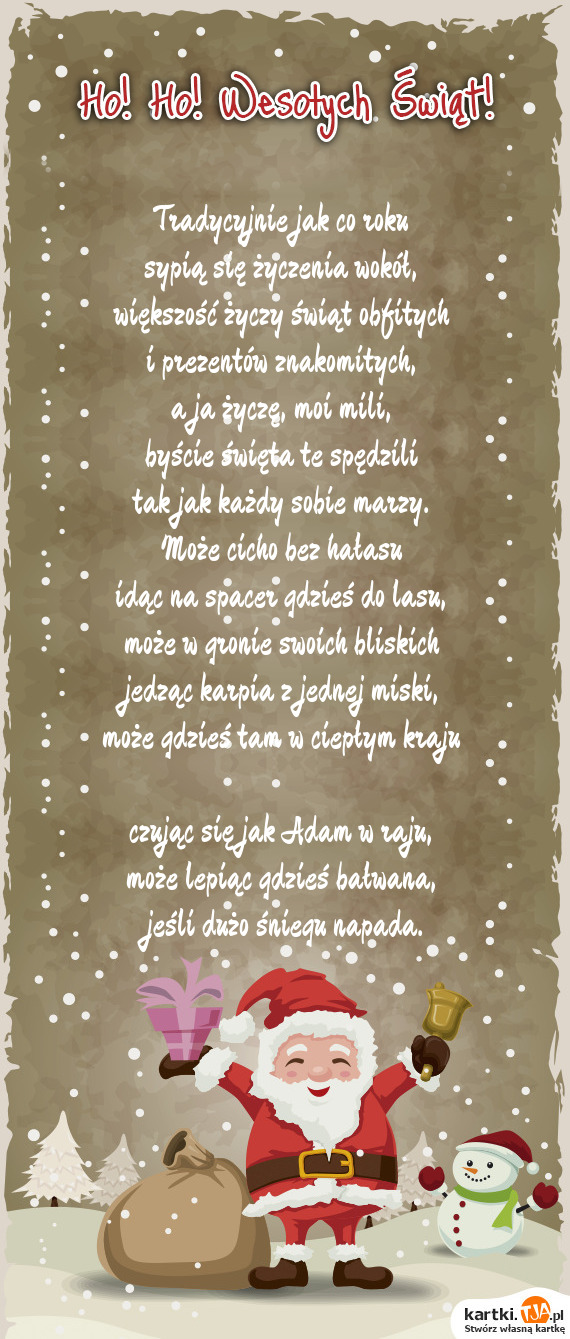 Ho! Ho! Wesołych Świąt!
Tradycyjnie jak co roku
sypią się życzenia wokół,
większość życzy świąt obfitych
i prezentów znakomitych,
a ja życzę, moi mili,
byście święta te spędzili
tak jak każdy sobie marzy.
Może cicho bez hałasu
idąc na spacer gdzieś do lasu,
może w gronie swoich bliskich
jedząc karpia z jednej miski,
może gdzieś tam w ciepłym kraju
czując się jak Adam w raju,
może lepiąc gdzieś bałwana,
jeśli dużo śniegu napada.
kartki.TJA.pl
Stwórz własną kartkę